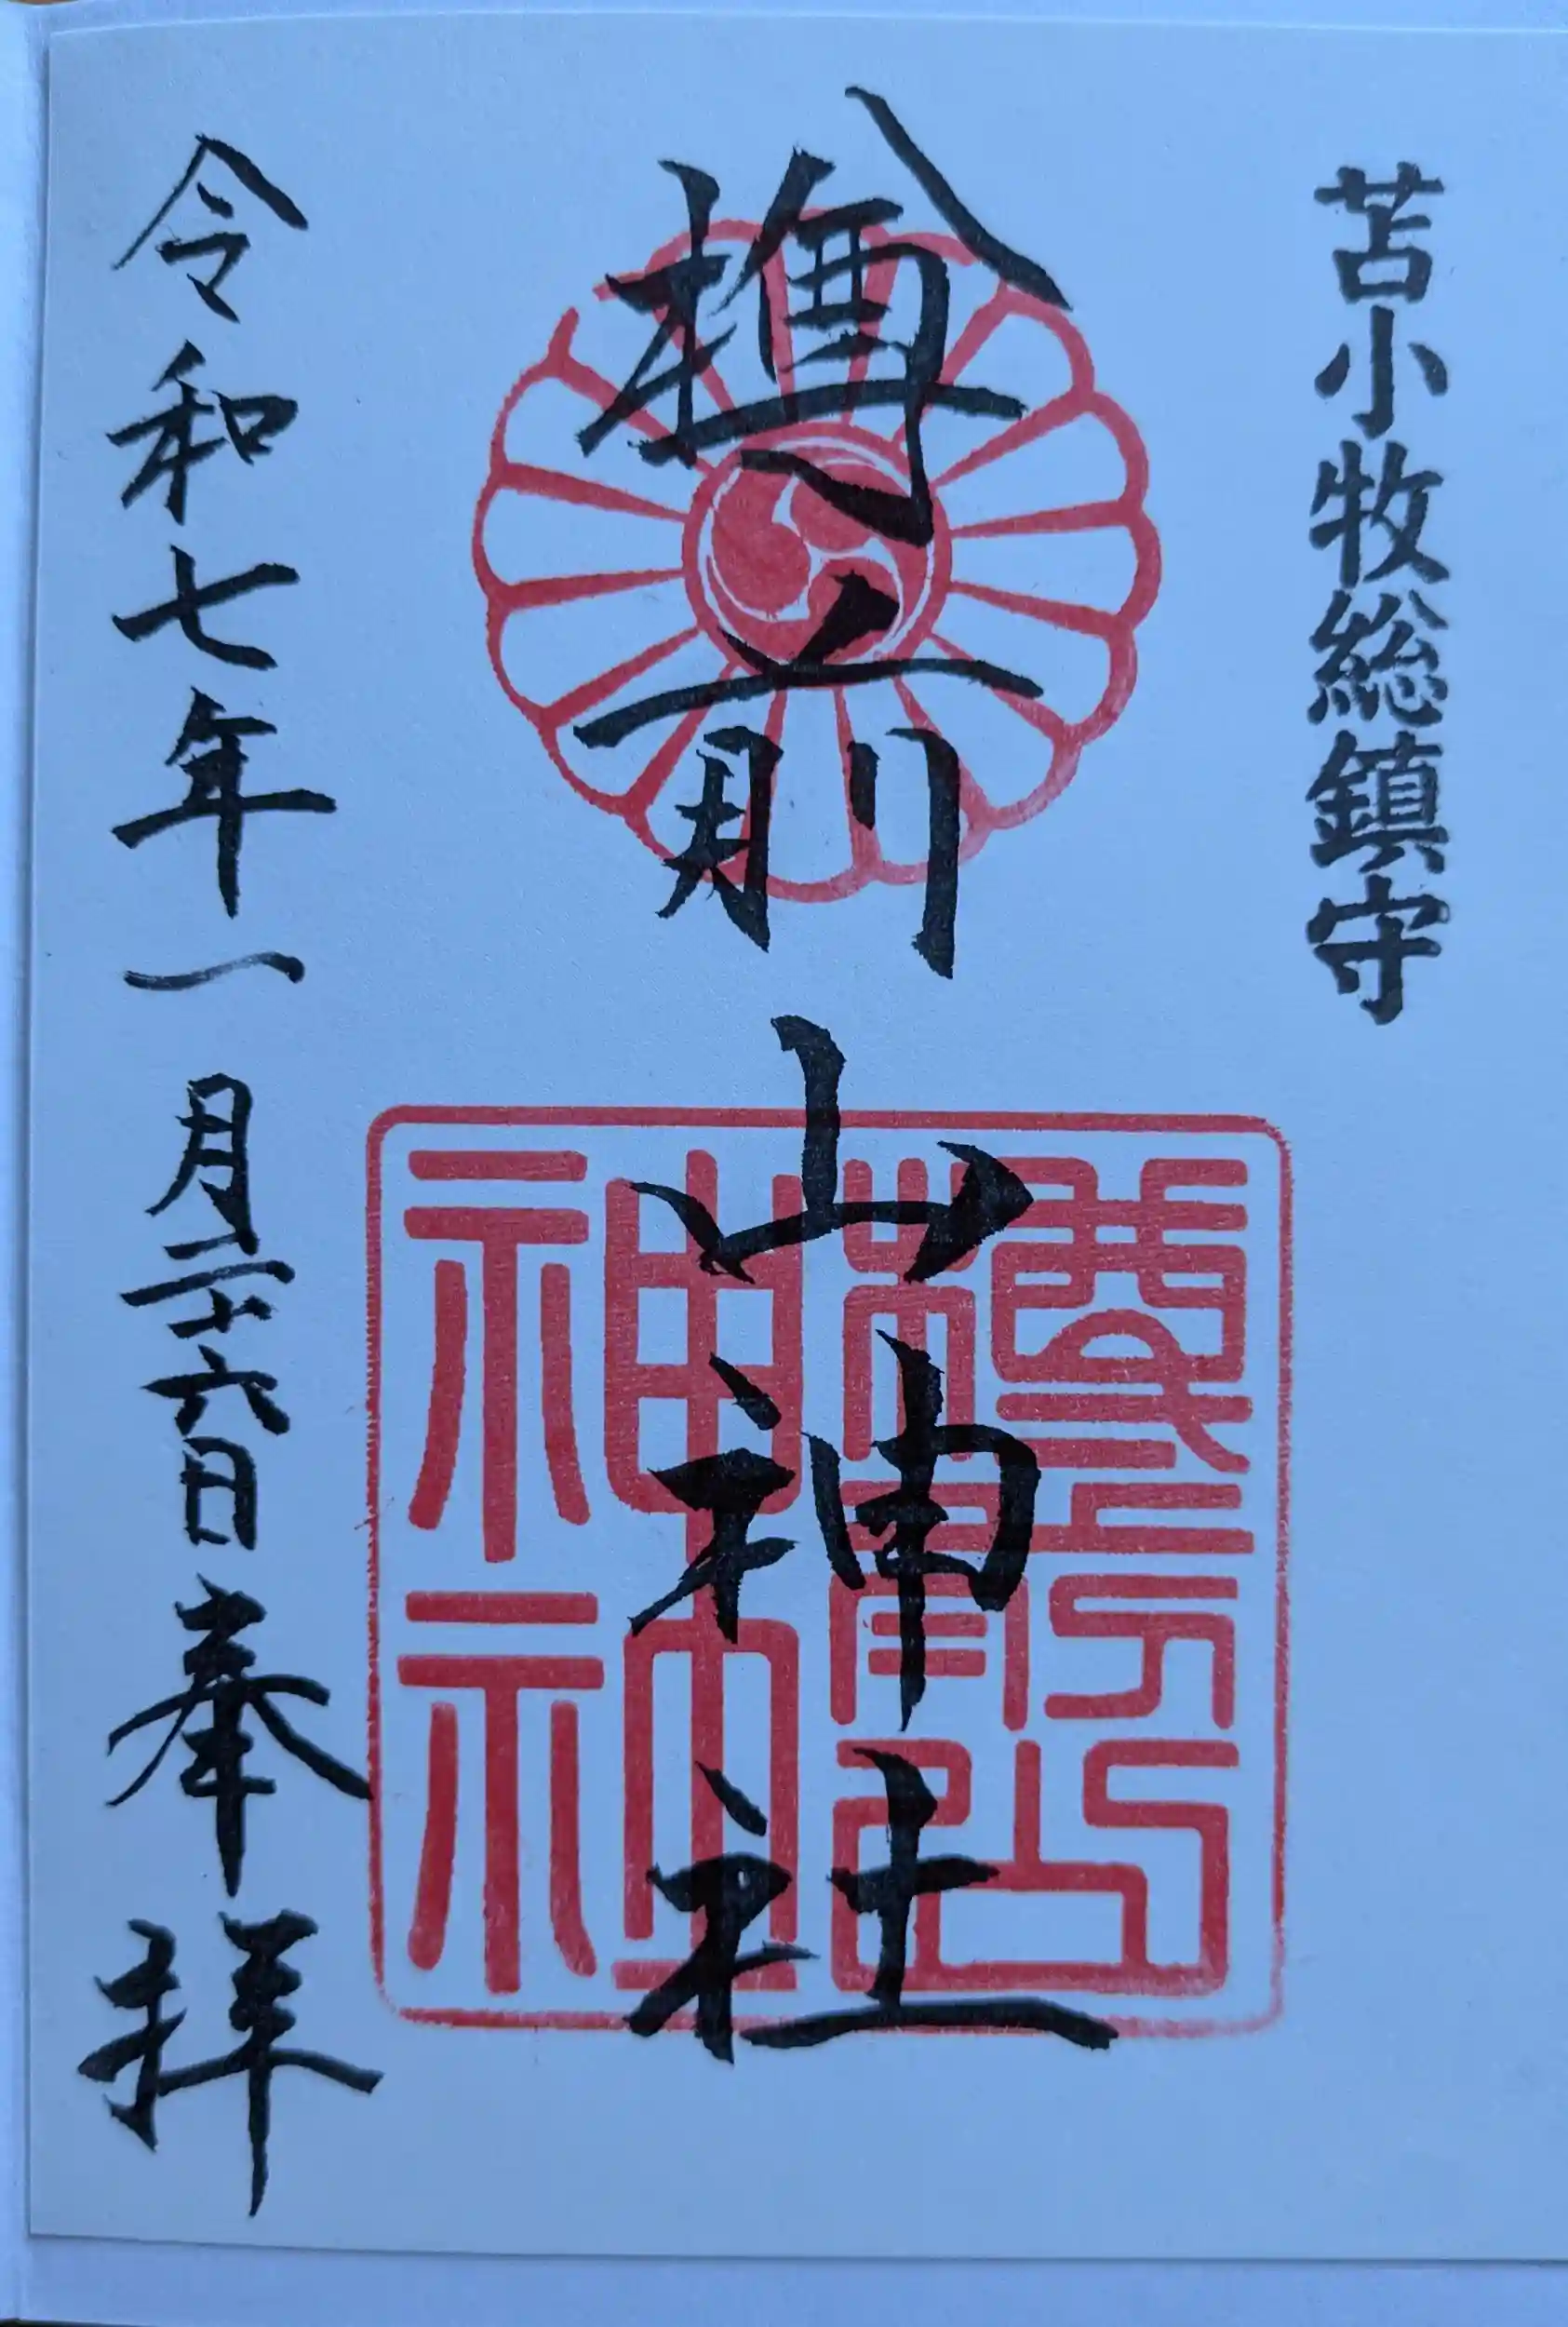 苫小牧総鎮守
樽前山神社
令和七年一月二十六日奉拝